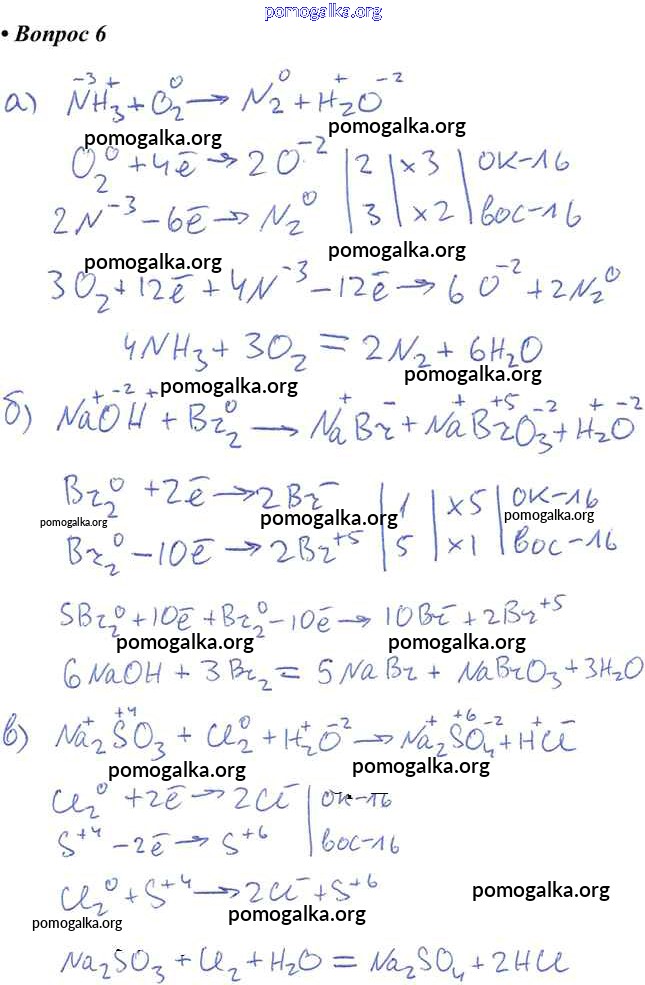 pomogalka.org
• Вопрос 6
а) N⁻³H⁺₃ + O⁰₂ → N⁰₂ + H⁺₂O⁻²
pomogalka.org pomogalka.org
O₂⁰ + 4ē → 2O⁻² | 2 | ×3 | ок-ль
2N⁻³ - 6ē → N₂⁰ | 3 | ×2 | вос-ль
pomogalka.org pomogalka.org
3O₂ + 12ē + 4N⁻³ - 12ē → 6O⁻² + 2N₂⁰
4NH₃ + 3O₂ = 2N₂ + 6H₂O
pomogalka.org pomogalka.org
б) Na⁺O⁻²H⁺ + Br₂⁰ → Na⁺Br⁻ + Na⁺Br⁺⁵O₃⁻² + H₂⁺O⁻²
Br₂⁰ + 2ē → 2Br⁻ | 1 | ×5 | ок-ль
pomogalka.org pomogalka.org pomogalka.org
Br₂⁰ - 10ē → 2Br⁺⁵ | 5 | ×1 | вос-ль
5Br₂⁰ + 10ē + Br₂⁰ - 10ē → 10Br⁻ + 2Br⁺⁵
pomogalka.org pomogalka.org
6NaOH + 3Br₂ = 5NaBr + NaBrO₃ + 3H₂O
в) Na₂⁺S⁺⁴O₃ + Cl₂⁰ + H₂⁺O⁻² → Na₂⁺S⁺⁶O₄⁻² + H⁺Cl⁻
pomogalka.org pomogalka.org
Cl₂⁰ + 2ē → 2Cl⁻ | ок-ль
S⁺⁴ - 2ē → S⁺⁶ | вос-ль
Cl₂⁰ + S⁺⁴ → 2Cl⁻ + S⁺⁶
pomogalka.org pomogalka.org pomogalka.org
Na₂SO₃ + Cl₂ + H₂O = Na₂SO₄ + 2HCl